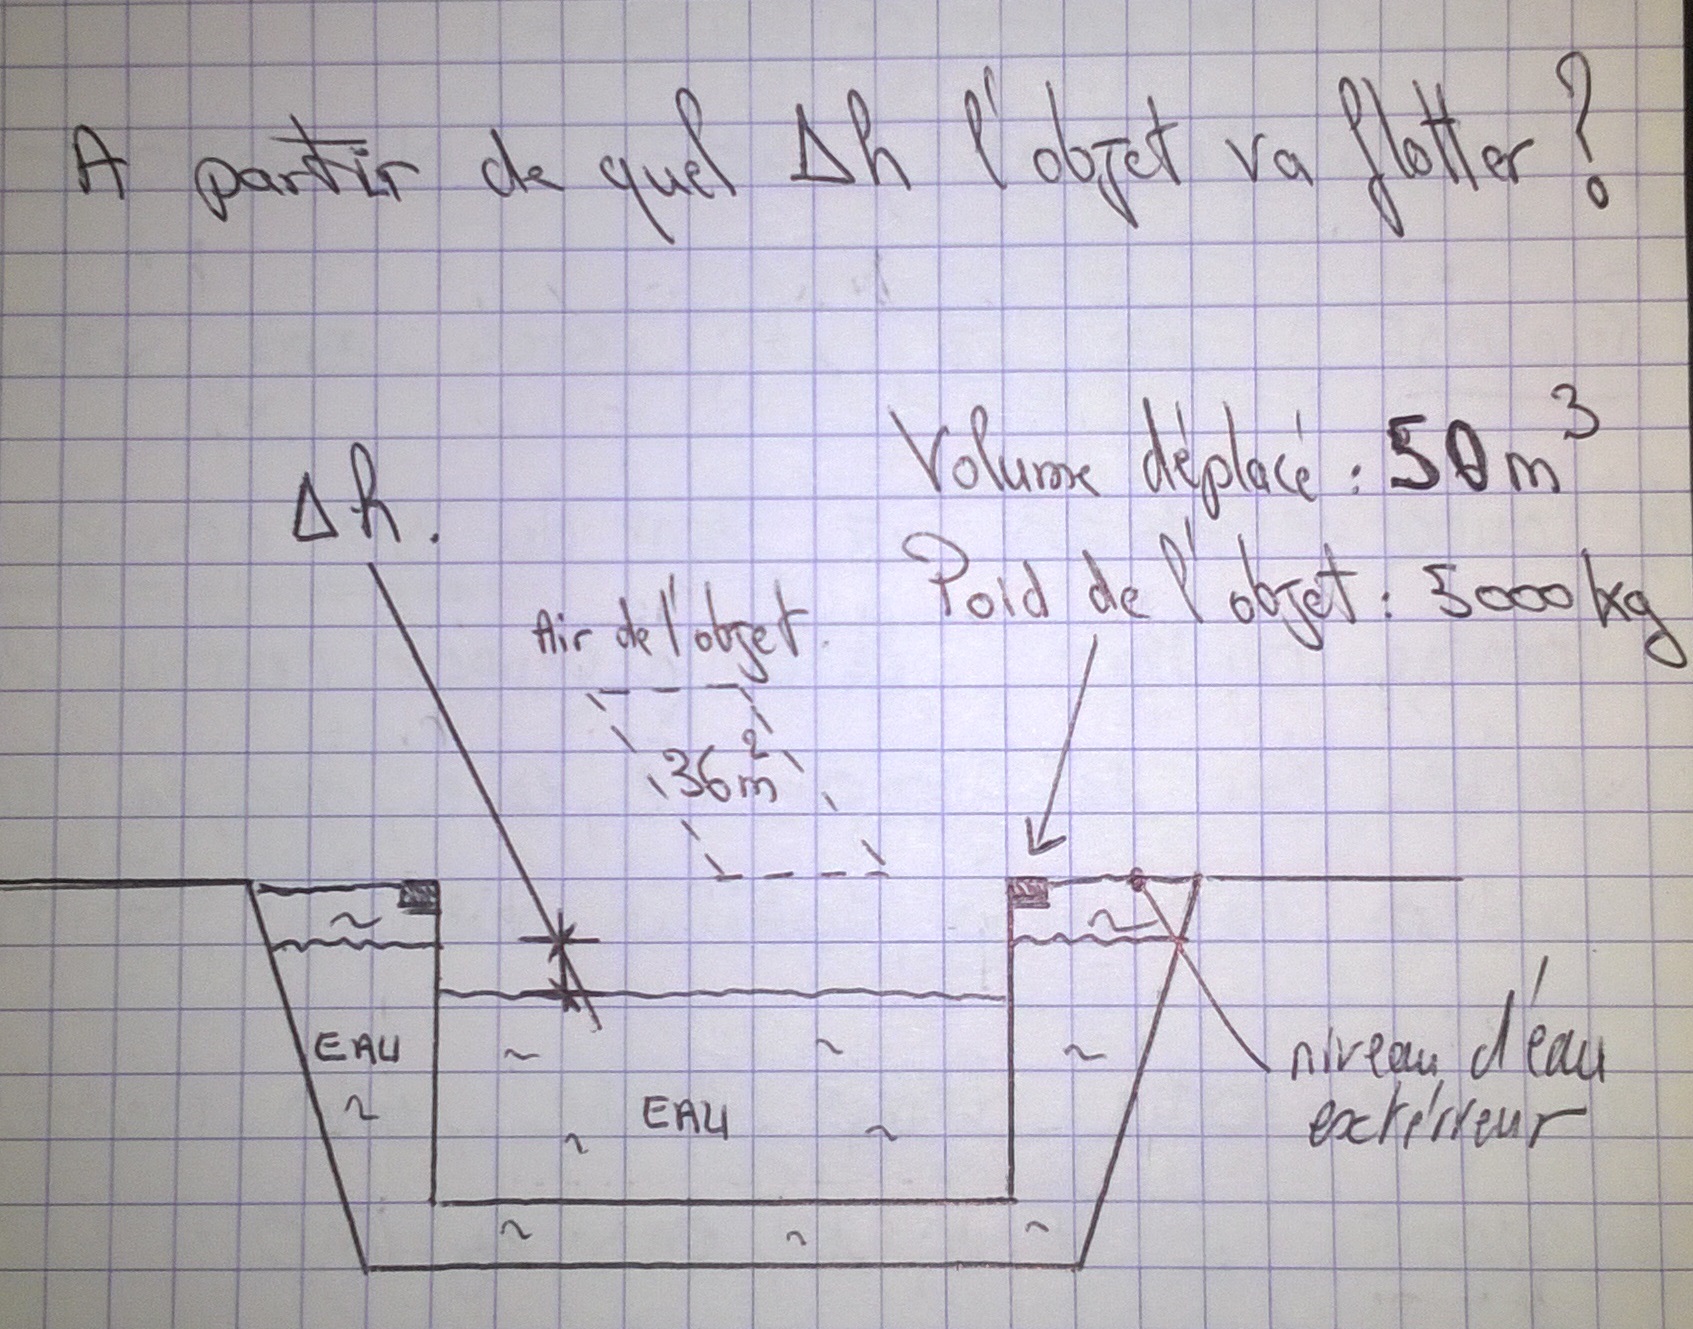 A partir de quel Δh l'objet va flotter ?
Volume déplacé : 50 m³
Δh.
Poid de l'objet : 5000 kg
Air de l'objet.
36 m²
EAU
niveau d'eau
extérieur
EAU